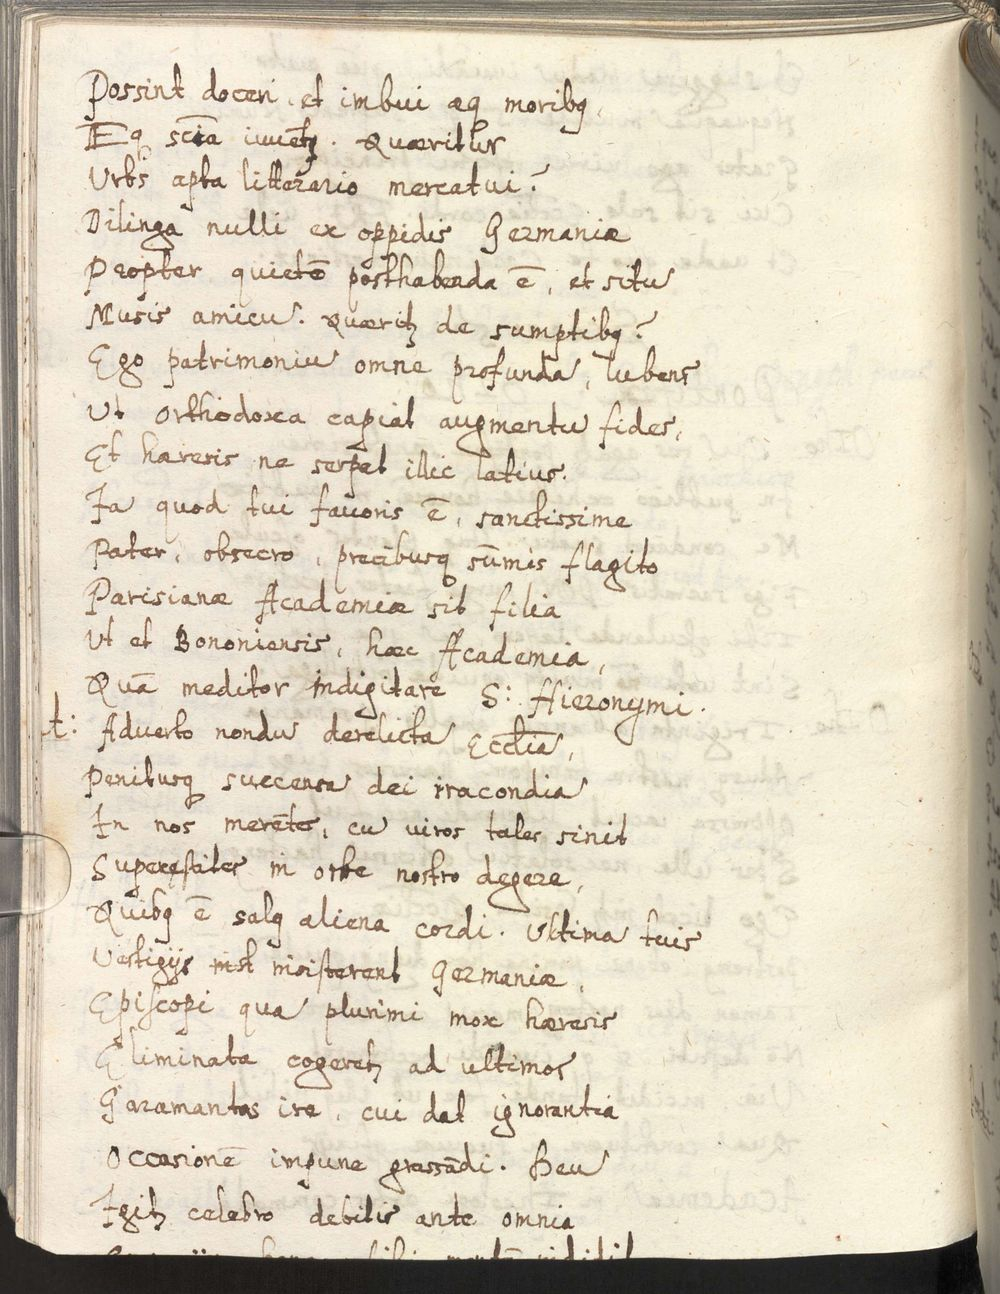 Possint doceri, et imbui æq moribq,
Eq scīa iuuētʒ. Quæritur
Urbs apta litterario mercatui?
Dilinga nulli ex oppidis Germaniæ
Propter quietē posthabenda ē, et situ
Musis amicu. Quæritʒ de sumptibq?
Ego patrimoniu omne profunda, lubens
Ut orthodoxa capiat augmentu fides,
Et hæresis ne serpat illic latius.
Ia quod tui fauoris ē, sanctissime
Pater, obsecro, precibusq sūmis flagito
Parisianæ Academiæ sit filia
Ut et Bononiensis, hæc Academia,
Quā meditor indigitare S: Hieronymi.
t: Aduerto nondu derelicta Ecclīa,
Penitusq succensa dei iracondia
In nos merētes, cu uiros tales sinit
Superstites in orbe nostro degere,
Quibq ē salq aliena cordi. Utima tuis
Uestigijs insisterent Germaniæ,
Episcopi qua plurimi mox hæresis
Eliminata cogeretʒ ad ultimos
Garamantas ire, cui dat ignorantia
Occasionē impune grassādi. Heu
Igitʒ celebro debilis ante omnia